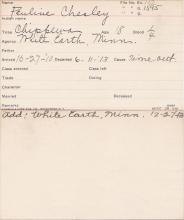 Name
Pauline Chesley
File No.
1595
Tribe Chippewa Age 18 Blood
Agency White Earth, Minn.
Father
Arrived 10-27-'10 Departed 6-11-'13 Cause Time out
Class entered Class left
Trade Outing
Character
Married Deceased
Remarks
Add: White Earth, Minn. 12-27-